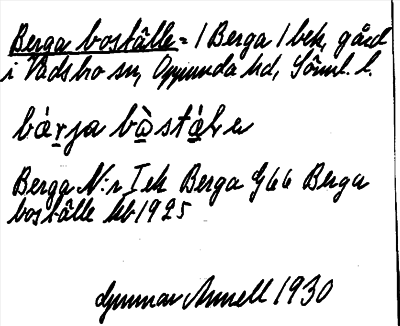 Berga boställe = 1 Berga 1 bek, gård
i Vadsbro sn, Oppunda hd, Södml. l.
bárja bòstäle
Berga N:r I ek Berga G 66 Berga
boställe kb 1925
Gunnar Annell 1930